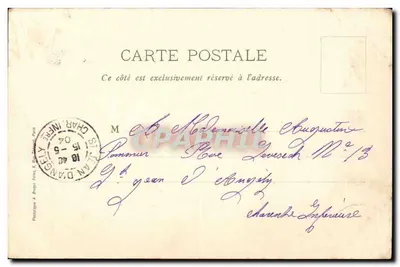 CARTE POSTALE
Ce côté est exclusivement réservé à l'adresse.
M
A Mademoiselle Augustin
Rue No 13
St jean d'Angély
Charente Inférieure
ST JEAN D'ANGELY
CHAR. INFRE
18 40
15 - 5
04